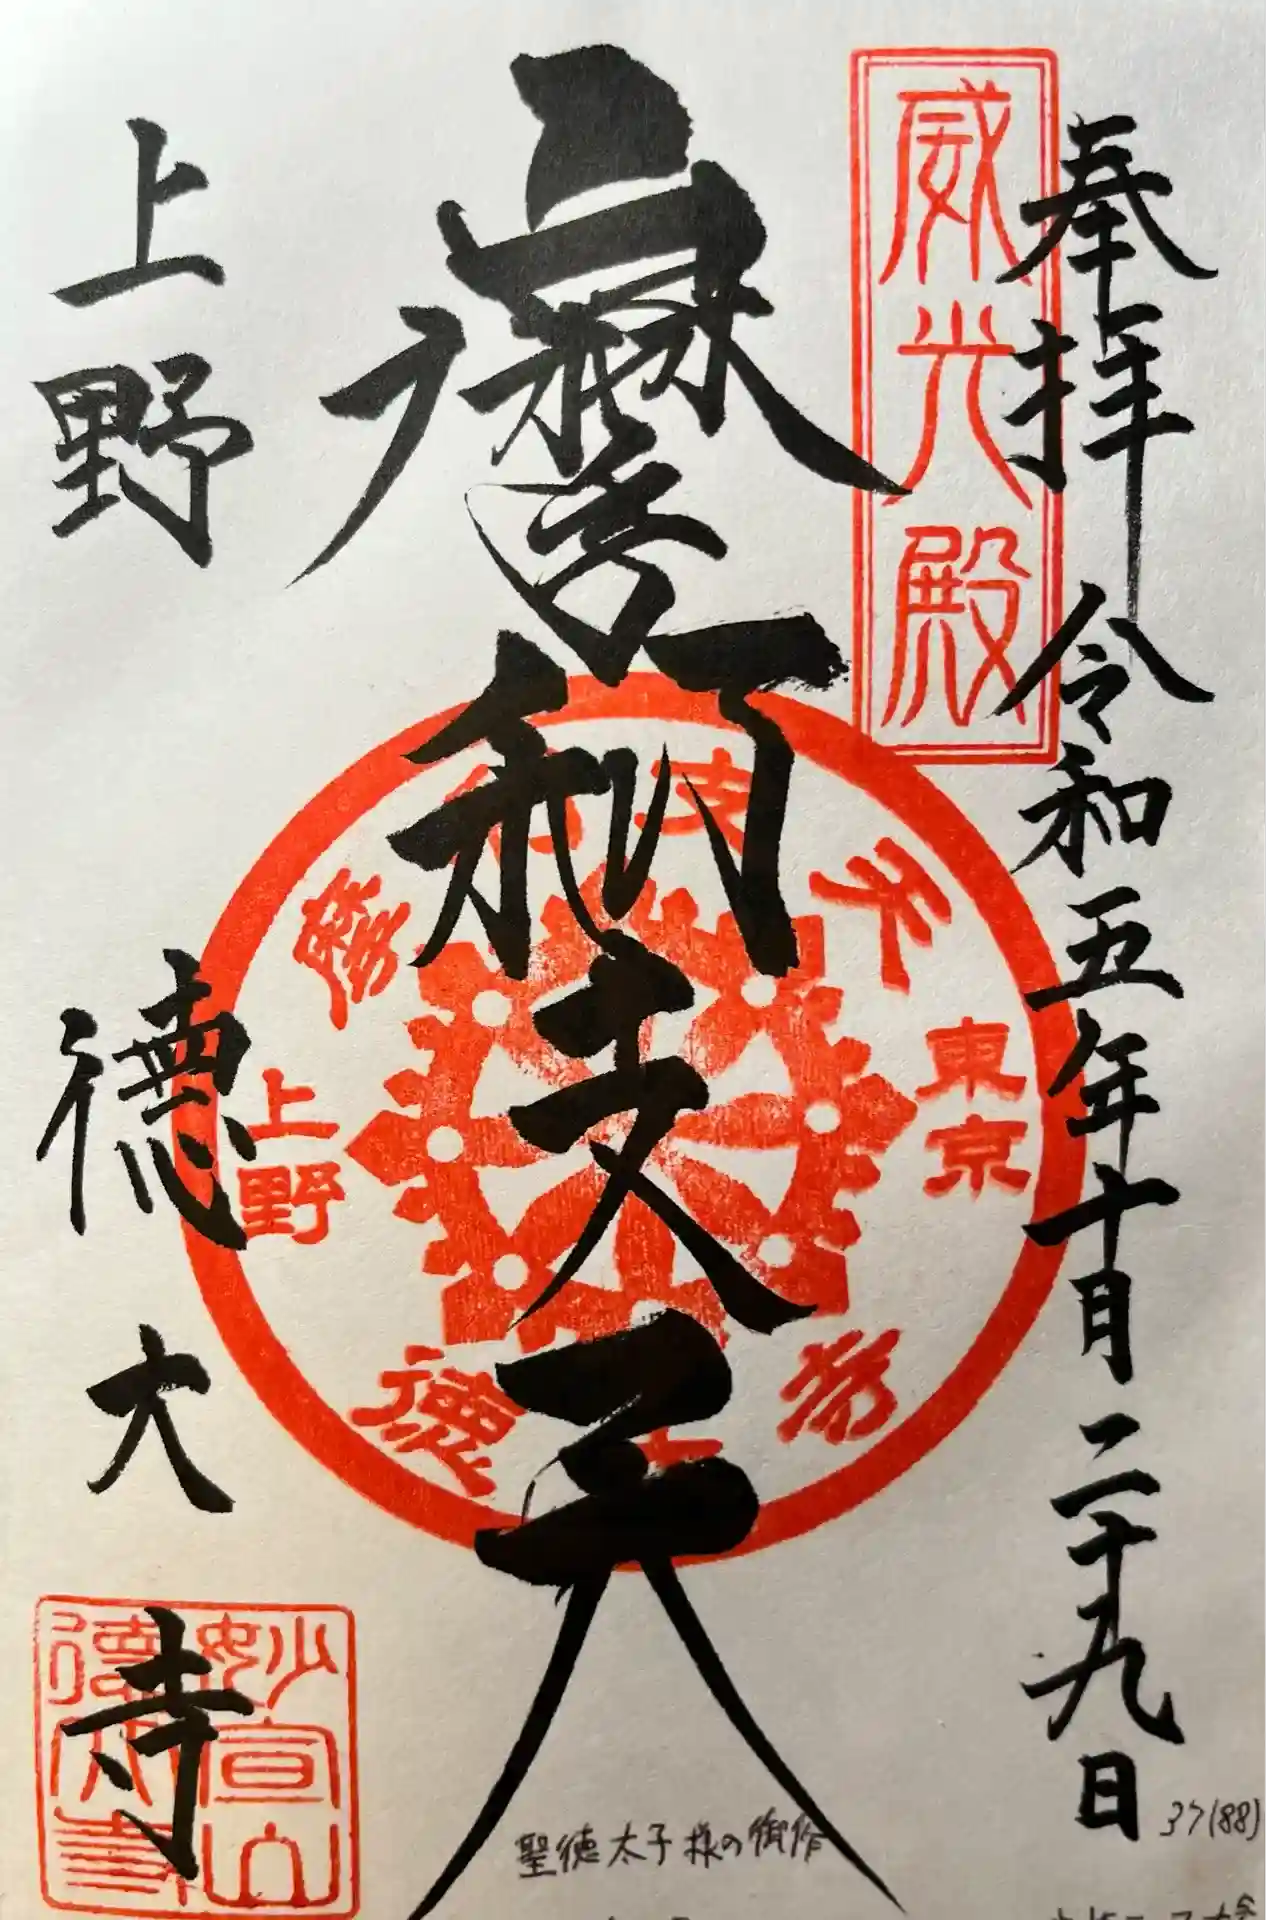 奉拝 令和五年十月二十九日
威光殿
摩利支天
摩利支天
東京
上野
徳大寺
上野 徳大寺
妙宣山
徳大寺
聖徳太子様の御作
37(88)